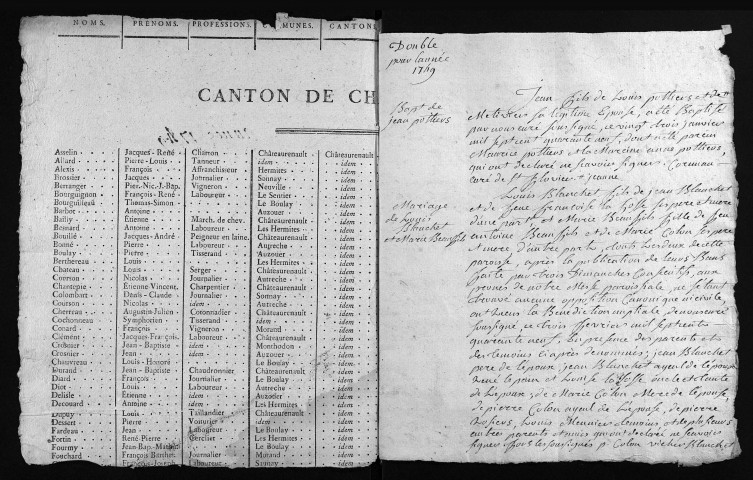 NOMS. PRÉNOMS. PROFESSIONS. COMMUNES. CANTONS
CANTON DE CH
Asselin Jacques-René Charron Châteaurenault Châteaurenault
Allard Pierre-Louis Tanneur idem idem
Alexis François Affranchisseur Hermites idem
Brosier Jacques Journalier Sonnay idem
Berranger Pier.-Nic.-J.-Bap. Vigneron Neuville idem
Bourguignon François-René Laboureur Le Sentier idem
Bourguilleau Thomas-Simon Le Boulay idem
Barbot Antoine Auzouer idem
Bailly Étienne March. de chev. Châteaurenault idem
Besnard Antoine Laboureur Les Hermites idem
Bouillé Jacques-André Peigneur en laine. Châteaurenault idem
Bonné Pierre Laboureur Autreche idem
Boulay Pierre Tisserand Auzouer idem
Berthereau Louis Les Hermites idem
Chateau Louis Serger Châteaurenault idem
Cormon Nicolas Journalier Autreche idem
Chantepie Étienne Vincent. Charpentier Châteaurenault idem
Colombart Denis-Claude Journalier Sonnay idem
Courson Nicolas idem Autreche idem
Cherreau Augustin-Julien Cotonnadier Châteaurenault idem
Cochonneau Symphorian Tisserand idem idem
Conard François Vigneron Morand idem
Clément Jacques-François. Laboureur Châteaurenault idem
Crémier Jean-Baptiste idem Monthodon idem
Crosnier Jean idem Auzouer idem
Chauvreau Louis-Honoré Le Boulay idem
Durand Jean-Baptiste Chaudronnier Châteaurenault idem
Diard François Journalier Le Boulay idem
Diot Louis Laboureur Autreche idem
Delisle Étienne idem Auzouer idem
Decouard Antoine idem Les Hermites idem
Dupuy Louis Taillandier Châteaurenault idem
Dessert Pierre Voiturier idem idem
Fardeau Jean Vigneron Le Boulay idem
Fortin René-Pierre Cerclier Morand idem
Fourmy Jean-Bap.-Mathurin Journalier Les Hermites idem
Fouchard François Barthel. Journalier Châteaurenault idem
François-Joseph Laboureur
Double
pour lannée
1749
Bapt de
jean pottiers
Jean fils de Louis pottiers et de
Metivier sa legitime Epouse, a été Baptisé
par nous curé soussigné, ce vingt trois janvier
mil sept cent quarante neuf, dont a été parein
Maurice pottiers et la Mareine anne pottiers
qui ont declaré ne scavoir signer. Cormeau
curé de St
Mariage
de Louis
Blanchet
et Marie Beaufils
Louis Blanchet fils de jean Blanchet
et de françoise la fosse ses pere et mere
d'une part et Marie Beaufils fille de feu
antoine Beaufils et de Marie Colon ses pere
et mere, d'autre part, touts les deux de cette
paroisse, après la publication de leurs Bans
faite par trois Dimanches Consecutifs, aux
prones de nôtre Messe paroissiale, ne se étant
trouvé aucune opposition Canonique ni civile,
ont reçeu la Benediction nuptiale de nous curé
soussigné, ce trois fevrier mil sept cents
quarante neuf, en presence des parents et
des temoins ci après denommés; jean Blanchet
pere de lepoux, jean Blanchet ayeul de lepoux
René le pain et Louise la fosse oncle et tente
de Lepoux, de Marie Colon Mere de l'epouse
de pierre Colon ayeul de Lepouse, de pierre
Louis Meunier temoins, et de plusieurs
autres parents et amis qui ont declaré ne scavoir
signer, fors les soussignés p Colon